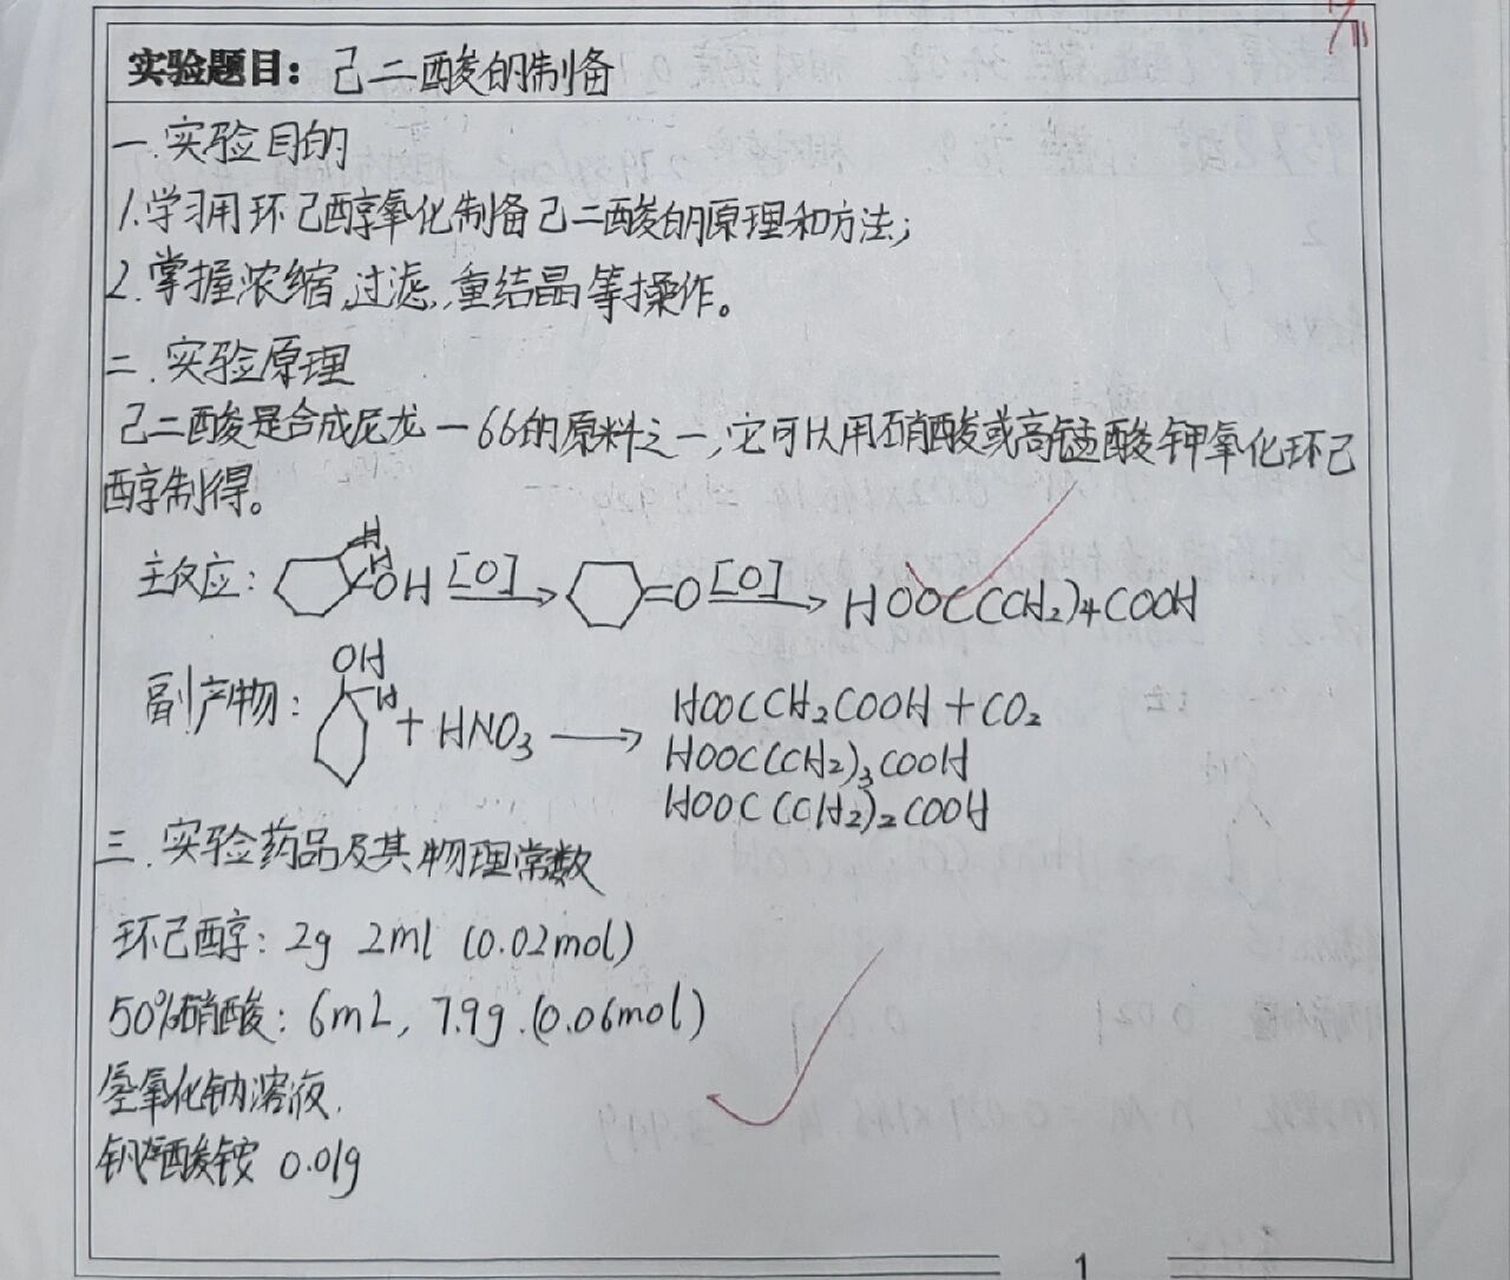 实验题目: 己二酸的制备
一.实验目的
1.学习用环己醇氧化制备己二酸的原理和方法;
2.掌握浓缩、过滤、重结晶等操作。
二.实验原理
己二酸是合成尼龙-66的原料之一,它可以用硝酸或高锰酸钾氧化环己
醇制得。
主反应: H H OH [O] =O [O] HOOC(CH2)4COOH
副产物: OH H + HNO3 → HOOCCH2COOH + CO2
HOOC(CH2)3COOH
HOOC(CH2)2COOH
三.实验药品及其物理常数
环己醇: 2g 2ml (0.02mol)
50%硝酸: 6mL, 7.9g.(0.06mol)
氢氧化钠溶液.
钒酸铵 0.01g
1